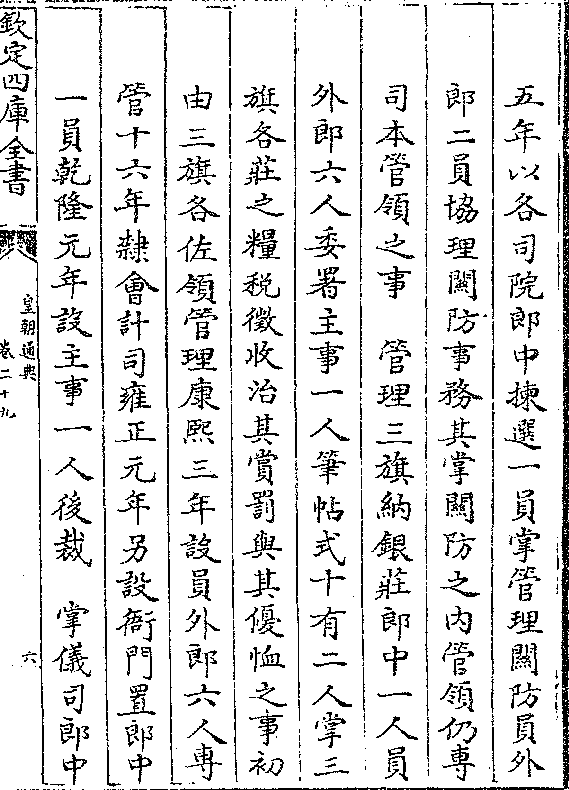 五年以各司院郎中揀選一員掌管理關防員外
郎二員協理關防事務其掌關防之内管領仍専
司本管領之事　管理三旗納銀莊郎中一人員
外郎六人委署主事一人筆帖式十有二人掌三
旗各莊之糧税徵收治其賞罰與其優恤之事初
由三旗各佐領管理康熙三年設員外郎六人専
管十六年隸會計司雍正元年另設衙門置郎中
一員乾隆元年設主事一人後裁　掌儀司郎中
欽定四庫全書
皇朝通典
卷二十九
六